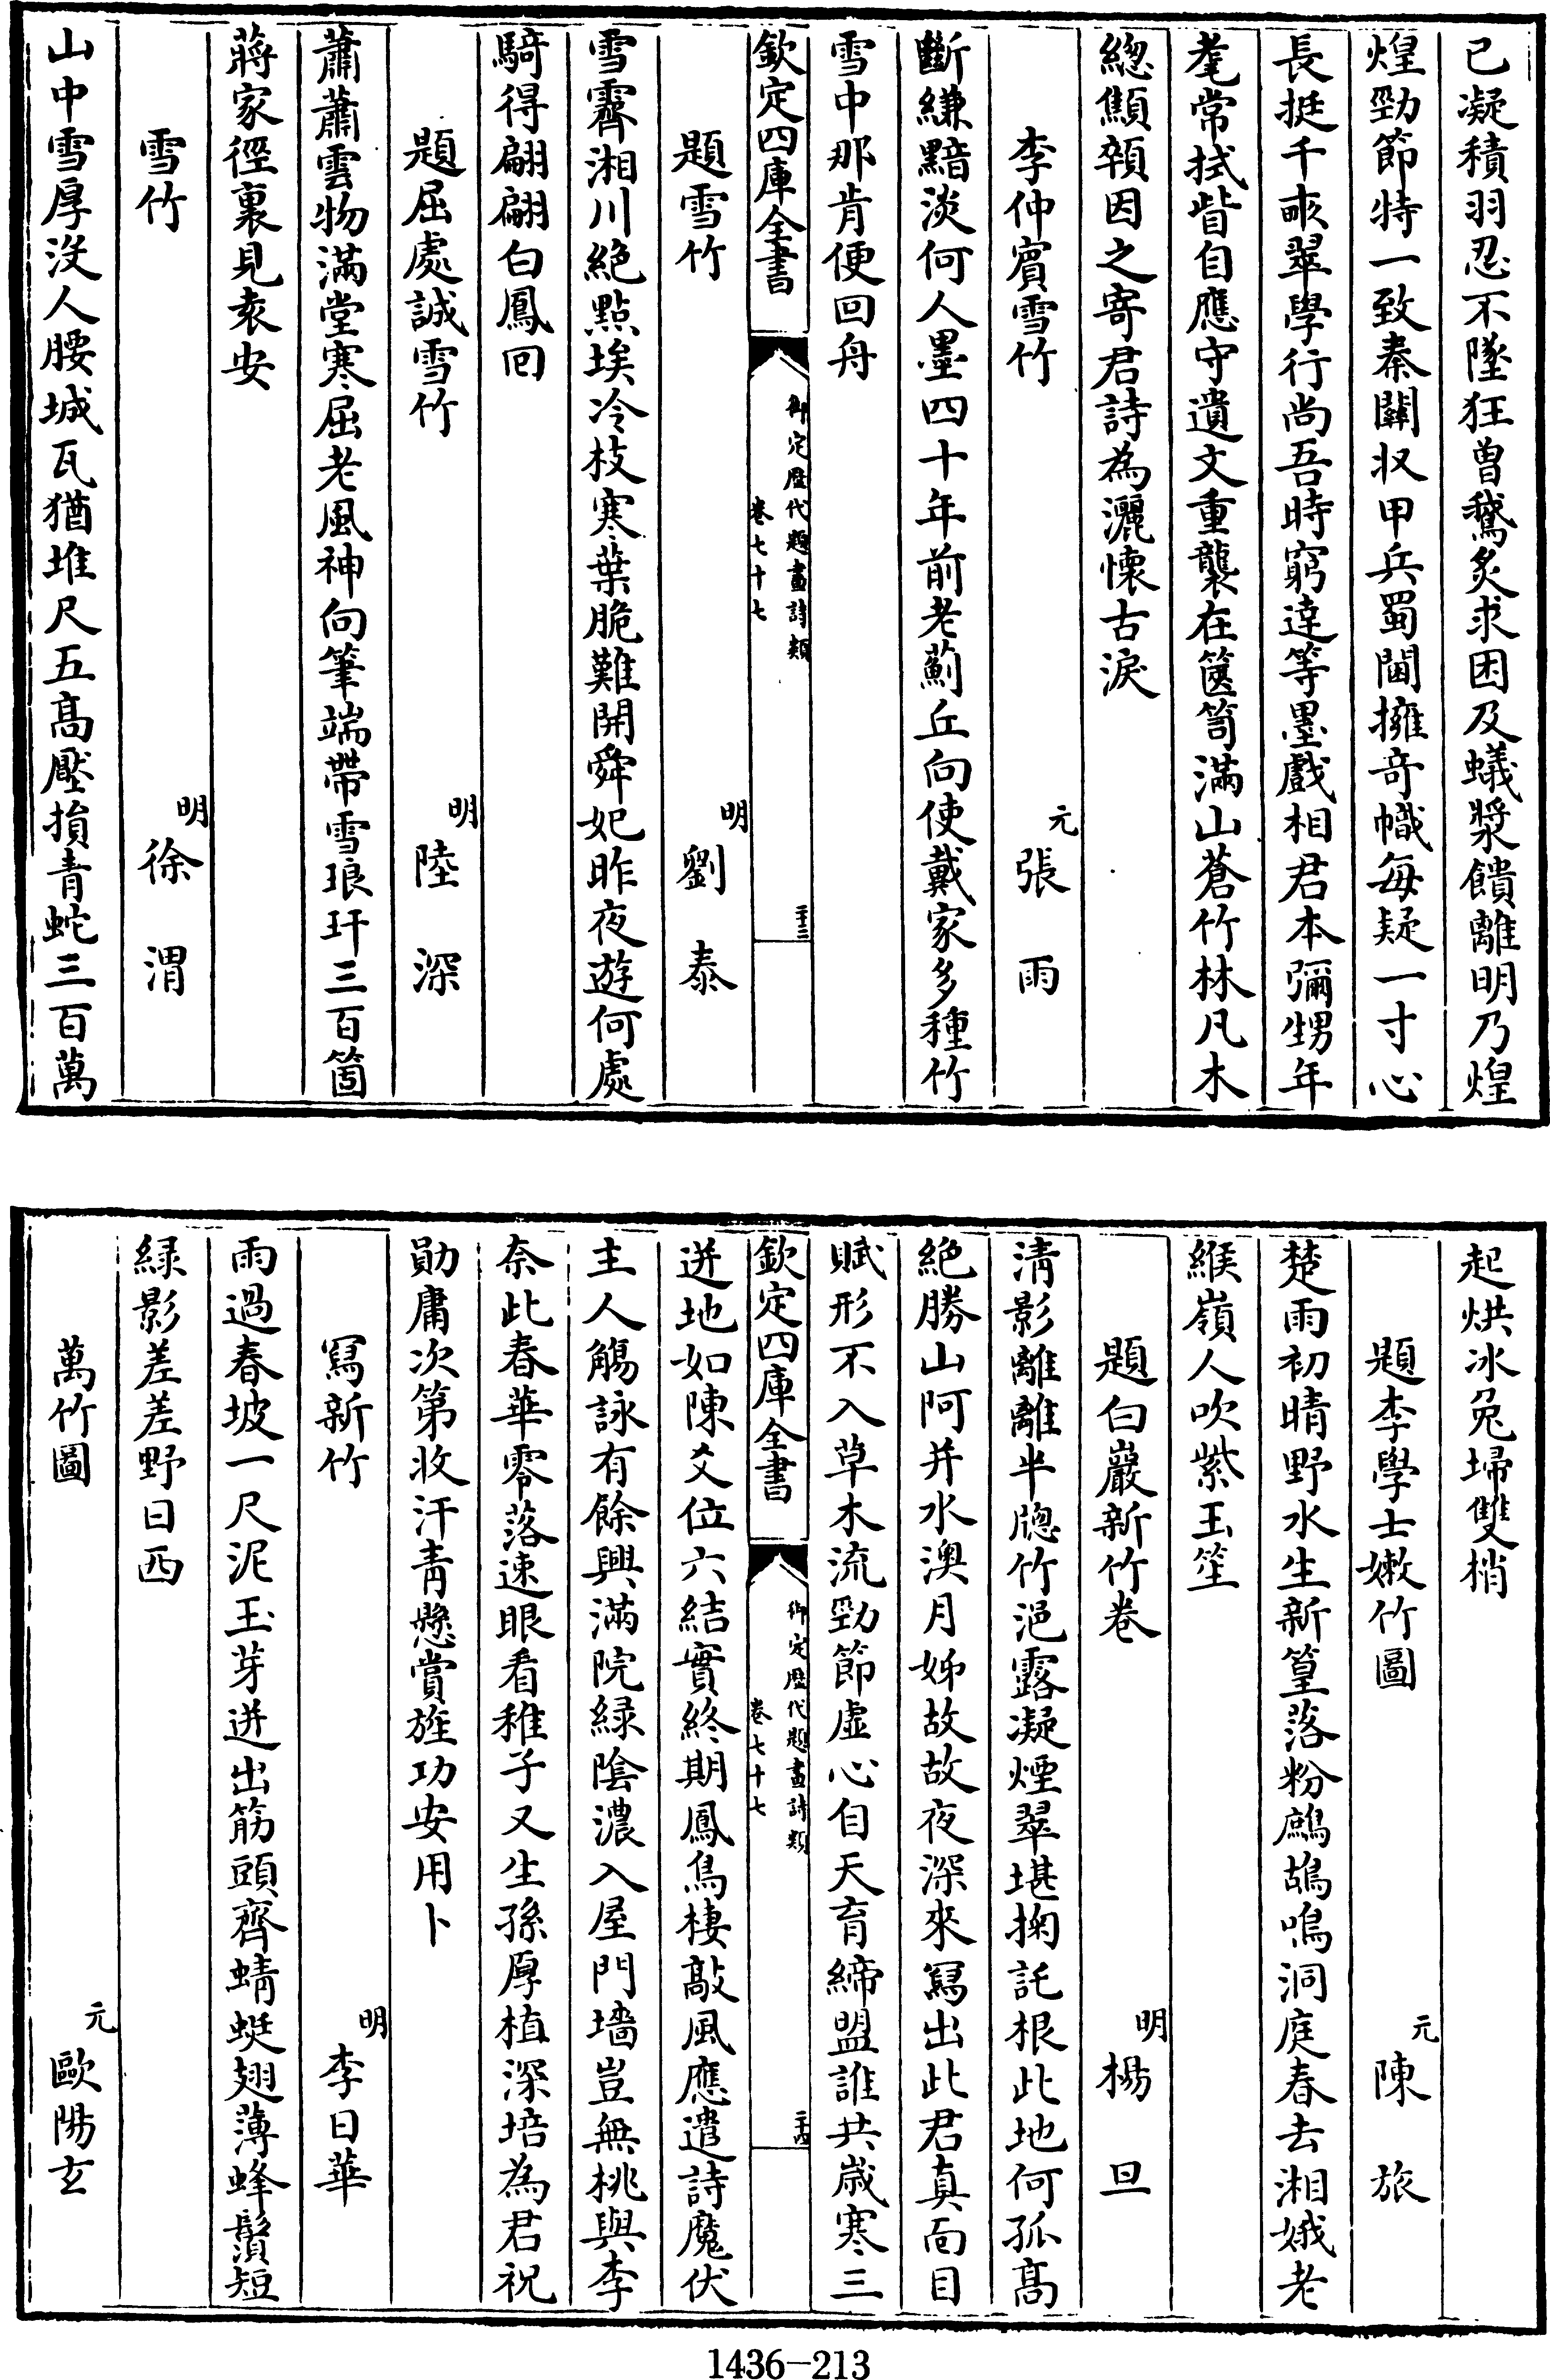 已凝積羽忍不墜狂曾鵝炙求困及蟻漿饋離明乃煌
煌勁節特一致秦關収甲兵蜀閫擁奇幟每疑一寸心
長挺千畝翠學行尚吾時窮達等墨戲相君本彌甥年
耄常拭眥自應守遺文重襲在篋笥滿山蒼竹林凡木
總顦顇因之寄君詩為灑懷古淚
李仲賓雪竹 元 張雨
斷縑黯淡何人墨四十年前老薊丘向使戴家多種竹
雪中那肯便回舟
欽定四庫全書 御定歷代題畫詩類 卷七十七 二十三
題雪竹 明 劉泰
雪霽湘川絕點埃冷枝寒葉脆難開舜妃昨夜遊何處
騎得翩翩白鳳回
題屈處誠雪竹 明 陸深
蕭蕭雲物滿堂寒屈老風神向筆端帶雪琅玕三百箇
蔣家徑裏見袁安
雪竹 明 徐渭
山中雪厚沒人腰城瓦猶堆尺五高壓損青蛇三百萬
起烘冰兔埽雙梢
題李學士嫩竹圖 元 陳旅
楚雨初晴野水生新篁落粉鷓鴣鳴洞庭春去湘娥老
緱嶺人吹紫玉笙
題白巖新竹卷 明 楊旦
清影離離半牕竹浥露凝煙翠堪掬託根此地何孤高
絕勝山阿并水澳月姊故故夜深來寫出此君真面目
賦形不入草木流勁節虛心自天育締盟誰共歲寒三
欽定四庫全書 御定歷代題畫詩類 卷七十七 二十四
迸地如陳爻位六結實終期鳳鳥棲敲風應遣詩魔伏
主人觴詠有餘興滿院緑陰濃入屋門墻豈無桃與李
奈此春華零落速眼看稚子又生孫厚植深培為君祝
勛庸次第收汗青懋賞旌功安用卜
寫新竹 明 李日華
雨過春坡一尺泥玉芽迸出筋頭齊蜻蜓翅薄蜂鬚短
緑影差差野日西
萬竹圖 元 歐陽玄
1436-213